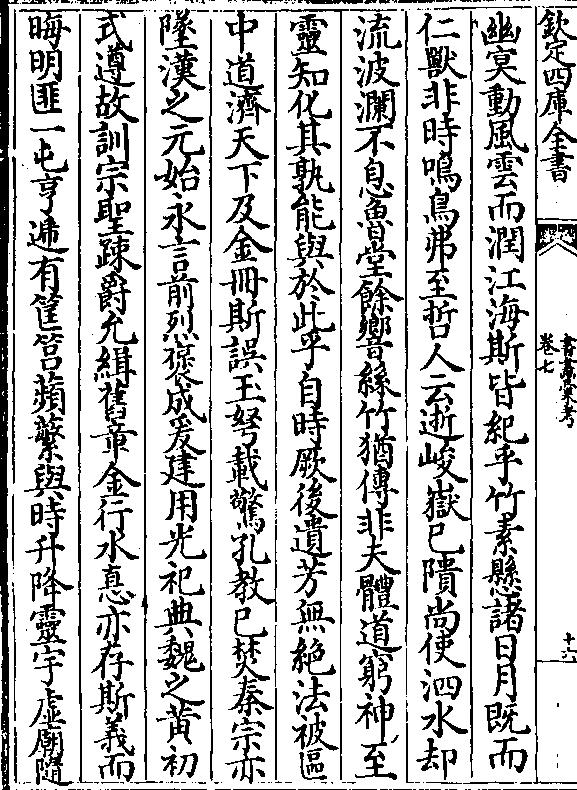 欽定四庫全書
書畫彙考
卷七
十六
幽冥動風雲而潤江海斯皆紀乎竹素懸諸日月既而
仁獸非時鳴鳥弗至哲人云逝峻嶽已隤尚使泗水却
流波瀾不息魯堂餘響絲竹猶傳非夫體道窮神至
靈知化其孰能與於此乎自時厥後遺芳無絕法被區
中道濟天下及金冊斯誤玉弩載驚孔教已焚秦宗亦
墜漢之元始永言前烈襃成爰建用光祀典魏之黃初
式遵故訓宗聖疎爵允緝舊章金行水悳亦存斯義而
晦明匪一屯亨遞有筐筥蘋蘩與時升降靈宇虛廟隨